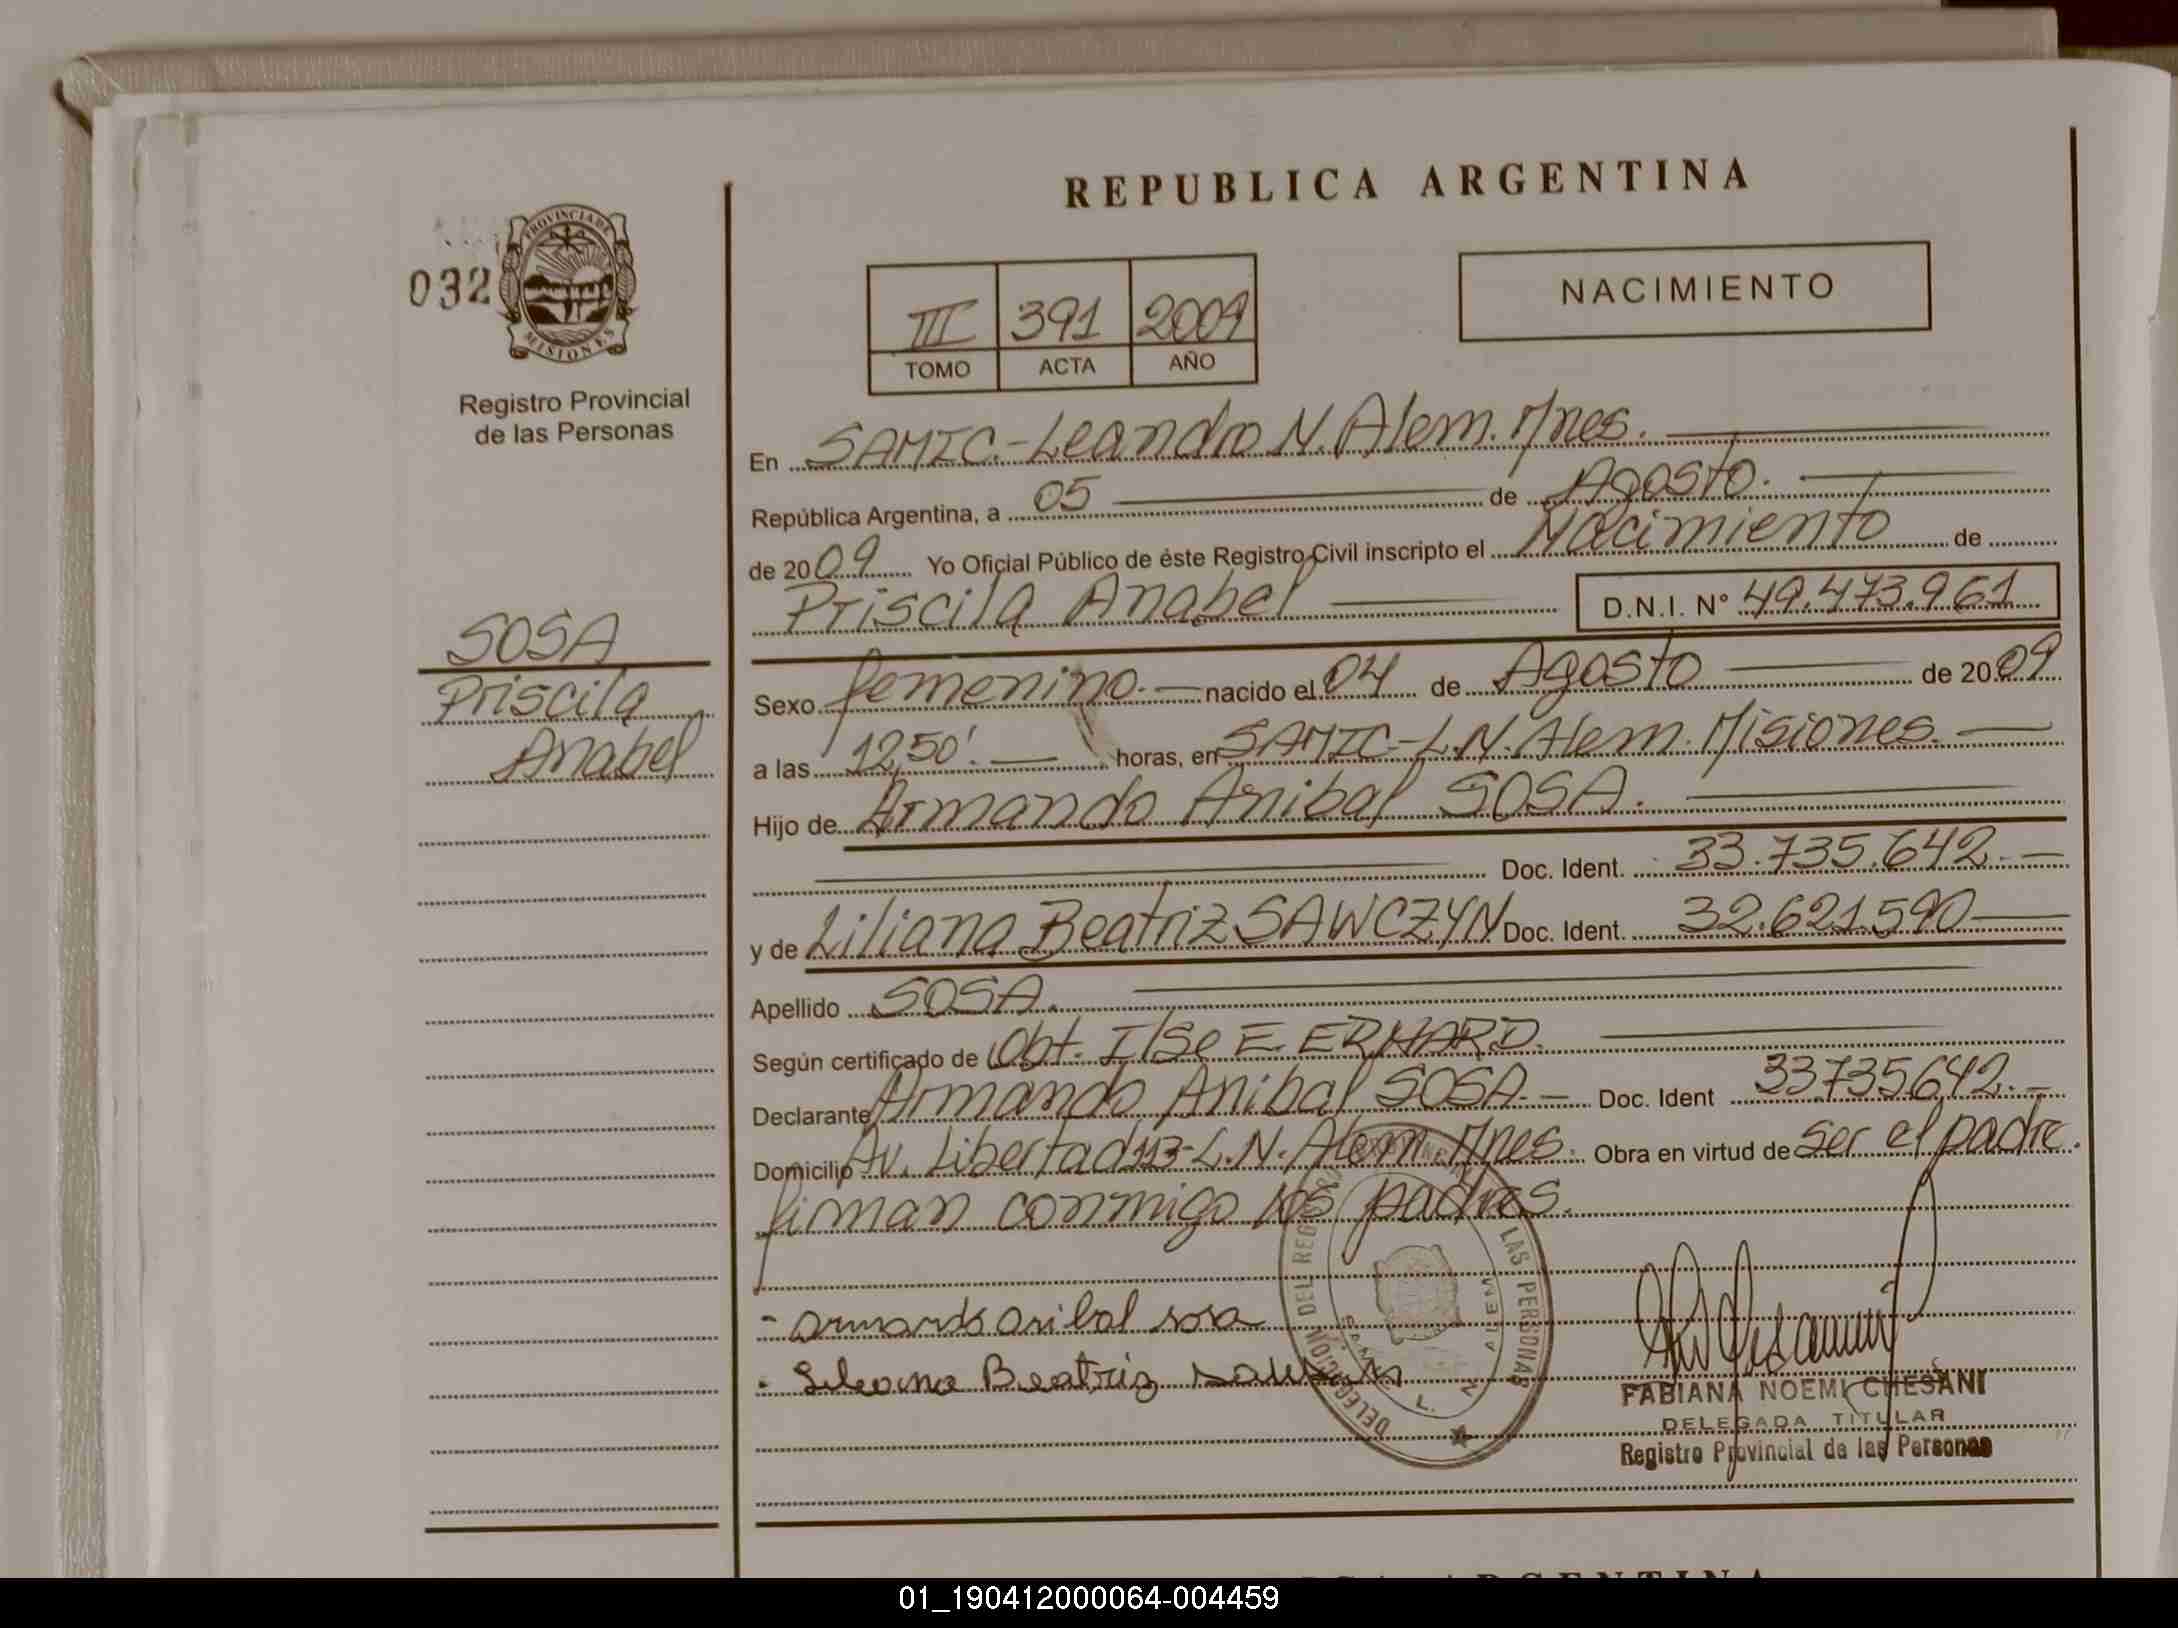 REPUBLICA ARGENTINA
032
PROVINCIA DE
MISIONES
Registro Provincial
de las Personas
III 391 2009
TOMO ACTA AÑO
NACIMIENTO
SOSA
Priscila
Anabel
En SAMIC.-Leandro N. Alem. Mnes.
República Argentina, a 05 de Agosto.
de 2009 Yo Oficial Público de éste Registro Civil inscripto el Nacimiento de
Priscila Anabel D.N.I. N° 49.473.961
Sexo femenino. nacido el 04 de Agosto de 2009
a las 12,50'. horas, en SAMIC-L.N. Alem. Misiones.
Hijo de Armando Anibal SOSA.
Doc. Ident. 33.735.642.
y de Liliana Beatriz SAWCZYN Doc. Ident. 32.621.590
Apellido SOSA.
Según certificado de Obt. Ilse E. ERHARD.
Declarante Armando Anibal SOSA. Doc. Ident 33735642.
Domicilio Av. Libertad 113-L.N. Alem Mnes. Obra en virtud de ser el padre.
firman conmigo los padres.
- armando anibal sosa
- Beatriz
DELEGACIÓN DEL LAS PERSONAS
L. N. ALEM
FABIANA NOEMI CHESANI
DELEGADA TITULAR
Registro Provincial de las Personas
01_190412000064-004459